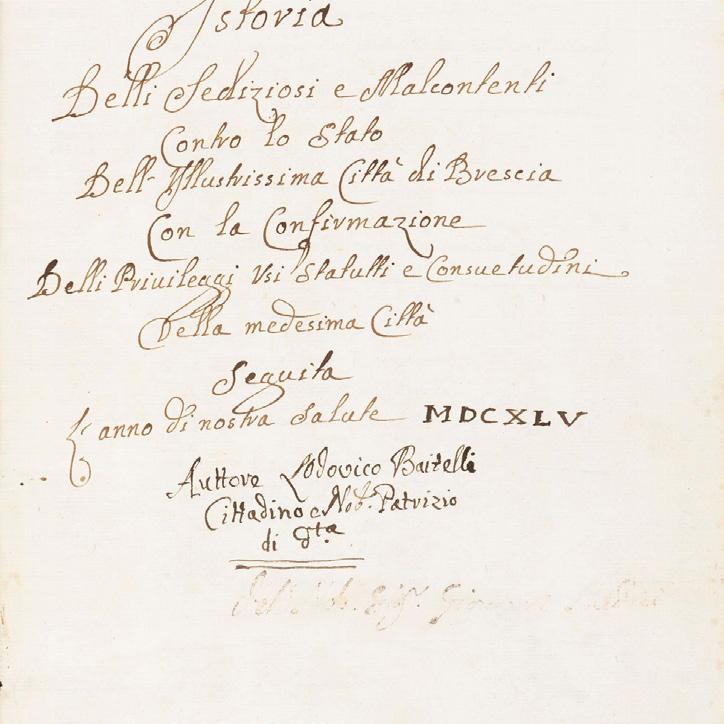 Istoria
Delli Sediziosi e Malcontenti
Contro lo Stato
Dell' Jllustrissima Città di Brescia
Con la Confirmazione
Delli Privileggi Usi Statutti e Consuetudini
Della medesima Città
Seguita
L'anno di nostra salute MDCXLV
Auttore Lodovico Baitelli
Cittadino e Nob. Patrizio
di dta
Del Nob. Sigr.